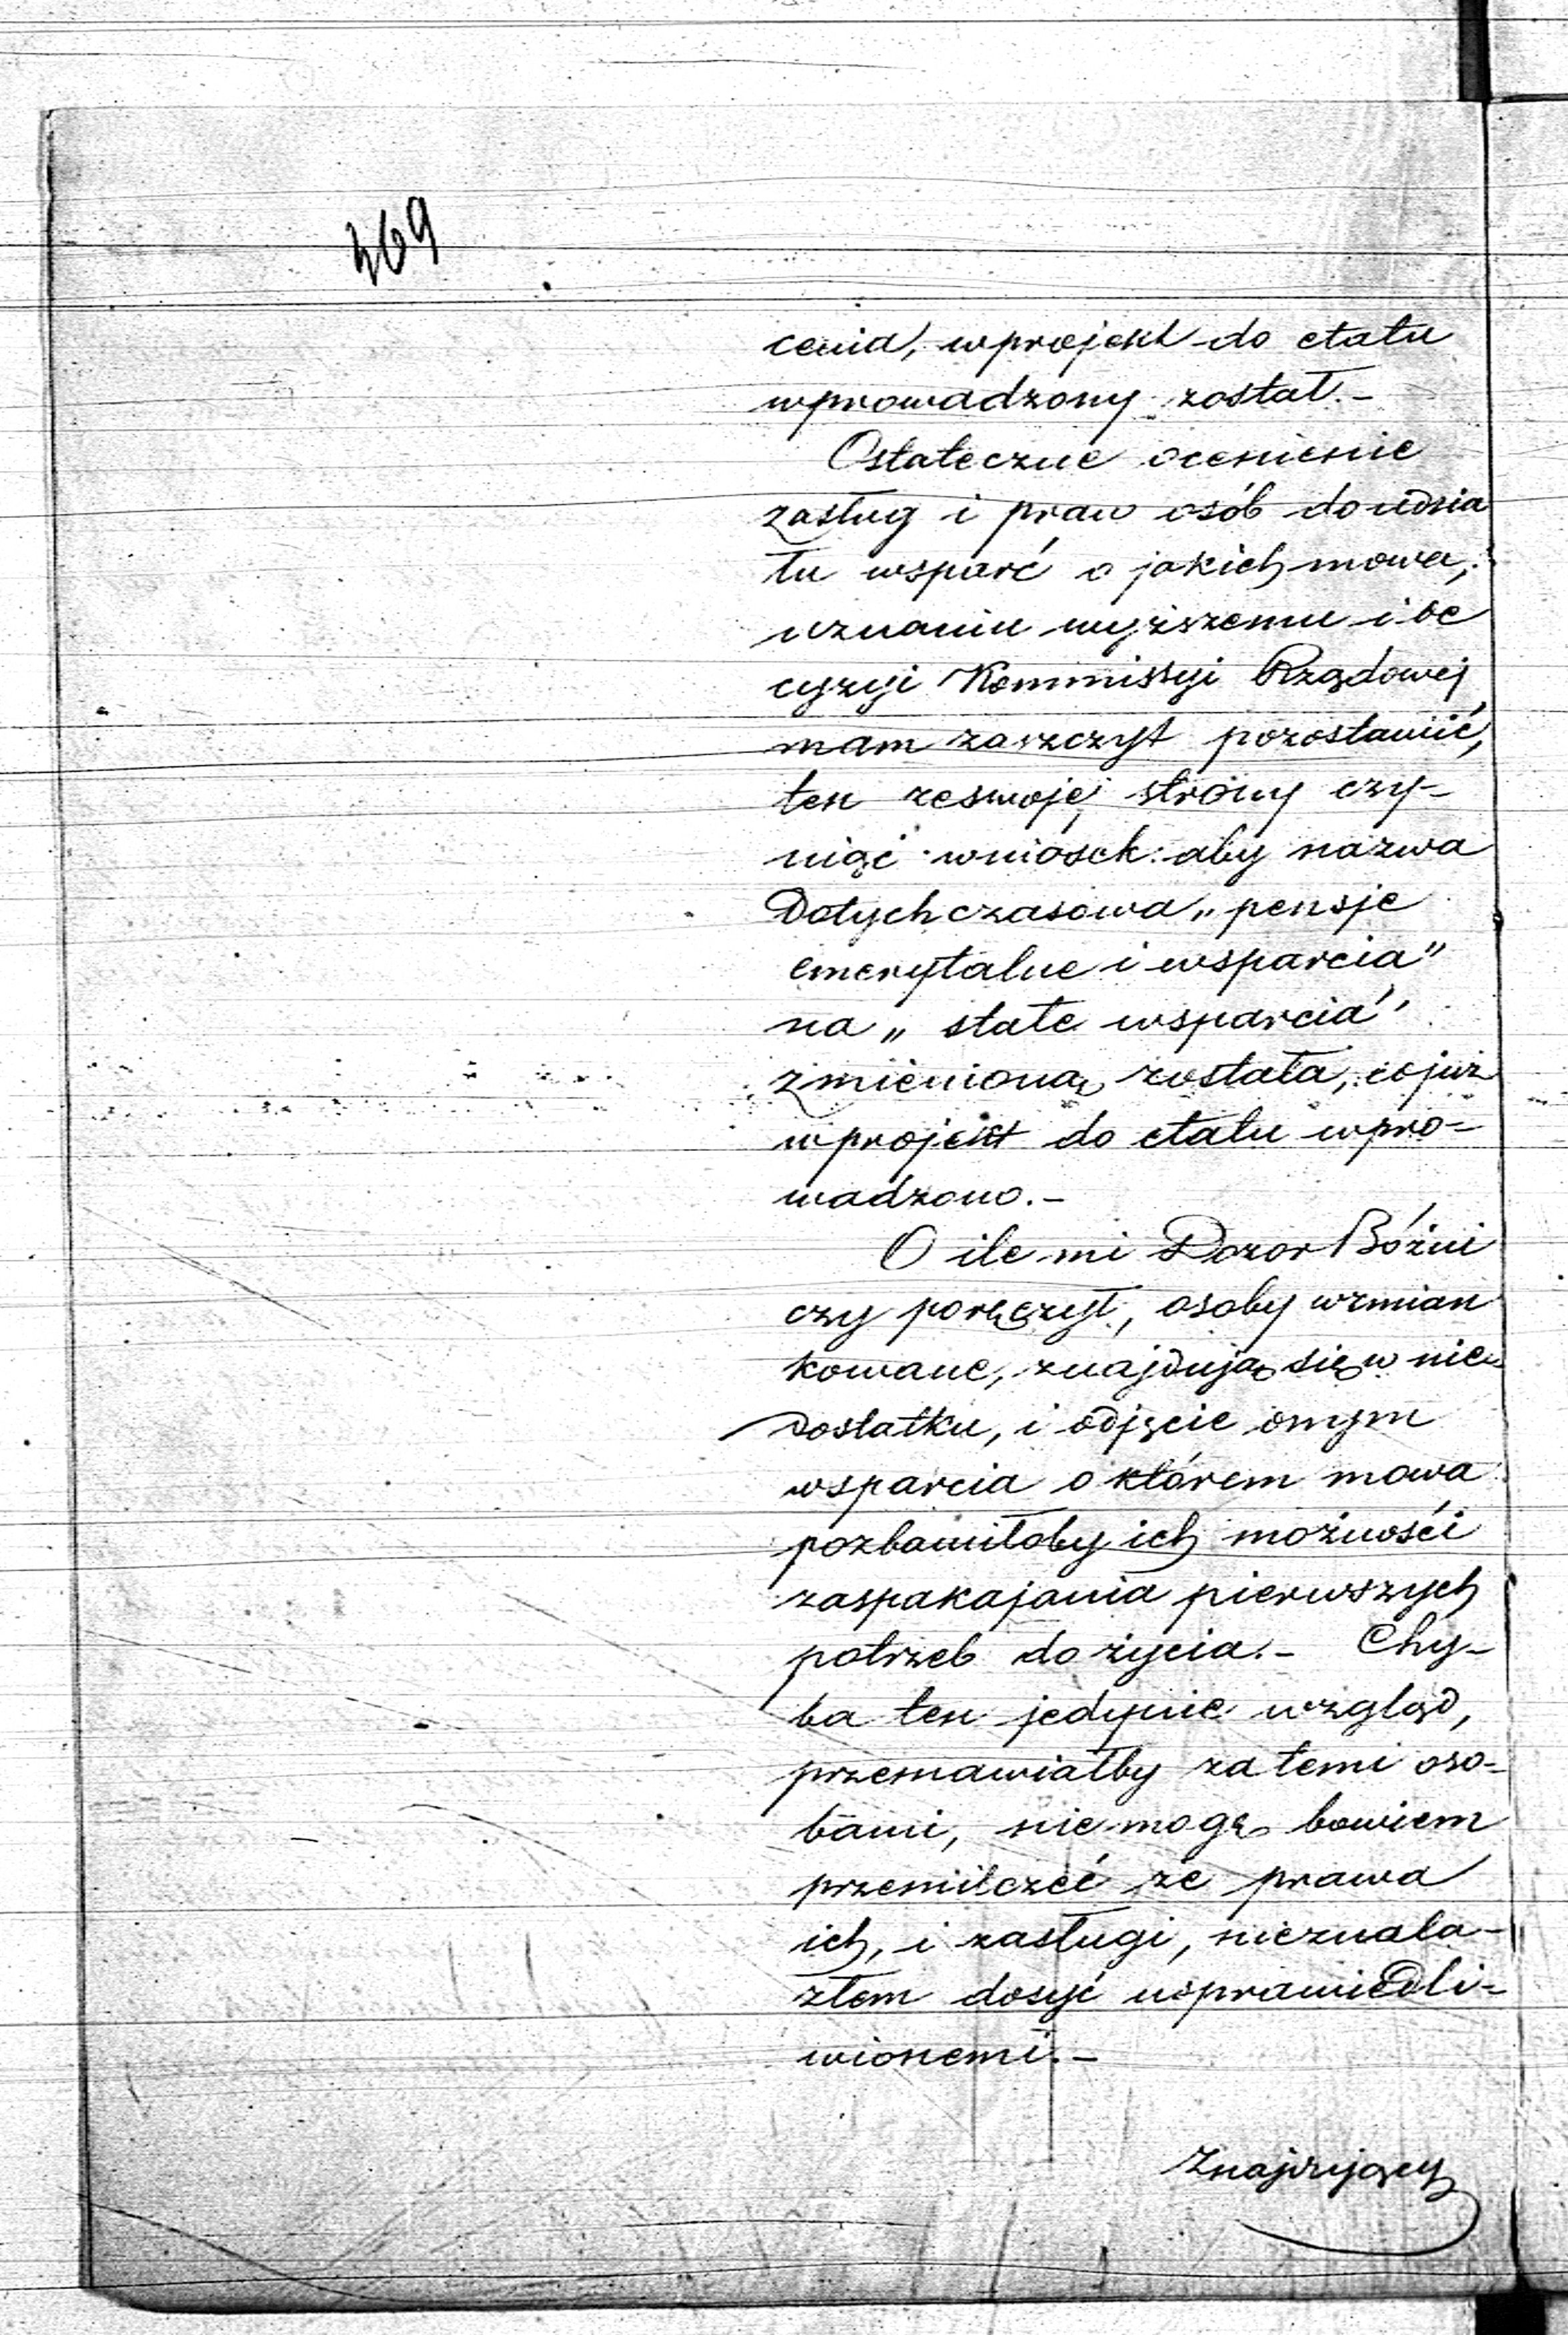 469
cenia, w projekt do etatu
wprowadzony został.-
Ostateczne ocenienie
zasług i praw osób do udzia
łu wsparć o jakich mowa,
uznaniu wyższemu i de
cyzyi Kommissyi Rządowej
mam zaszczyt pozostawić,
ten ze swojej strony czy-
niąc wniosek: aby nazwa
Dotychczasowa „pensje
emerytalne i wsparcia"
na „stałe wsparcia"
zmienioną została, co już
w projekt do etatu wpro-
wadzono.-
O ile mi Dozor Bóżni
czy poręczył, osoby wzmian
kowane, znajdują się w nie
dostatku, i odjęcie onym
wsparcia o którem mowa
pozbawiłoby ich możności
zaspakajania pierwszych
potrzeb do życia.- Chy-
ba ten jedynie wzgląd,
przemawiałby za temi oso-
bami, nie mogę bowiem
przemilczeć że prawa
ich, i zasługi, nieznala-
złem dosyć usprawiedli-
wionemi.-
Znajdujący